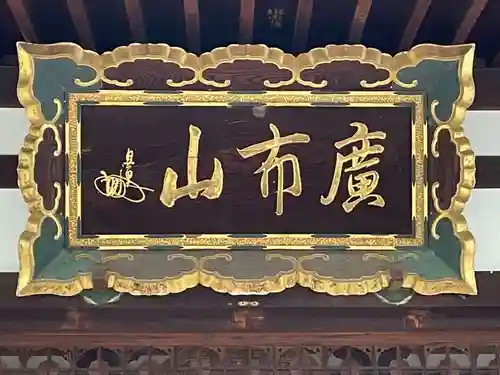 廣布山